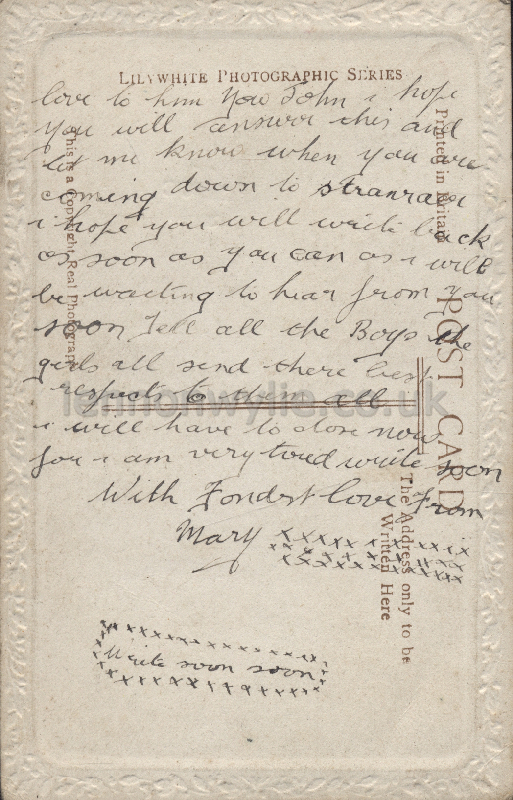 LILYWHITE PHOTOGRAPHIC SERIES
love to him now John i hope
you will answer this and
let me know when you are
coming down to stranraer
i hope you will write back
as soon as you can as i will
be waiting to hear from you
soon Tell all the Boys the
girls all send there best
respects to them all
i will have to close now
for i am very tired write soon
With Fondest love From
Mary xxxxxxxxxx
xxxxxxxxxxx
xxxxxxxxxx
Write soon soon
Printed in Britain
This is a Copyright Real Photograph
POST CARD
The Address only to be
Written Here
lennonwylie.co.uk